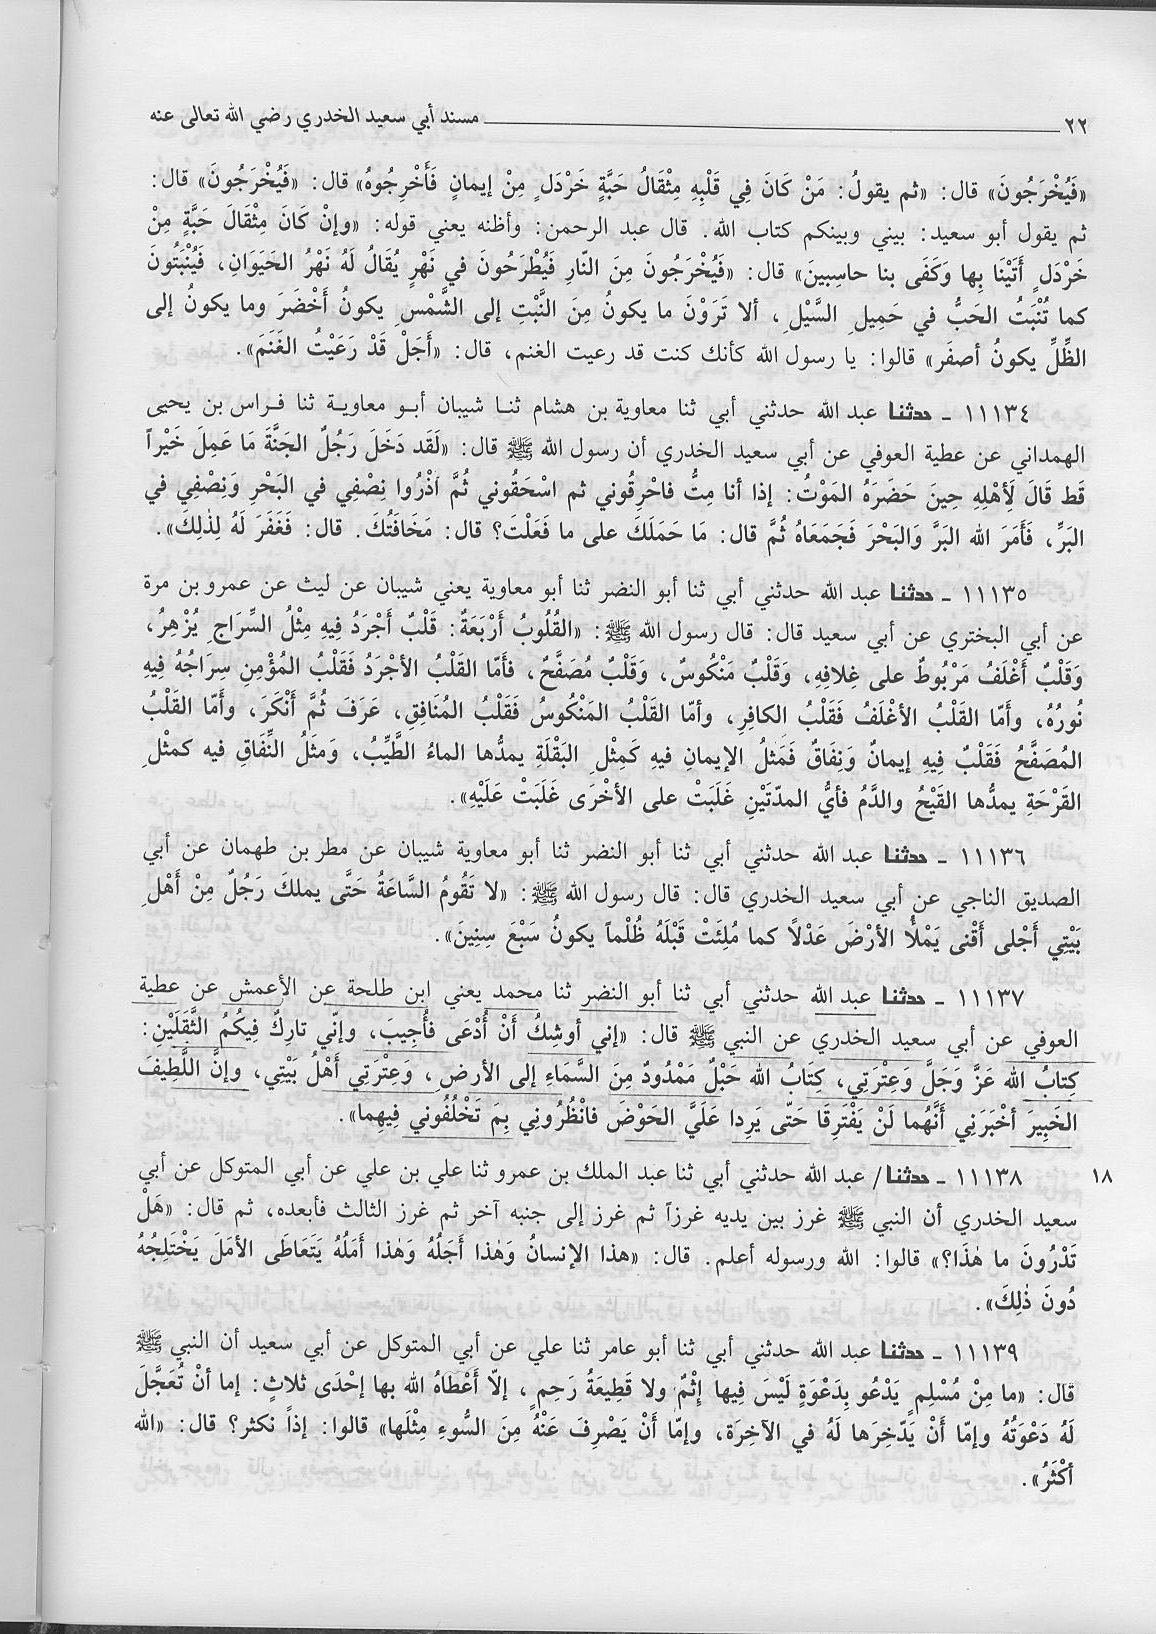 ٢٢ مسند أبي سعيد الخدري رضي الله تعالى عنه
«فَيُخْرَجُونَ» قال: «ثم يقولُ: مَنْ كَانَ فِي قَلْبِهِ مِثْقَالُ حَبَّةِ خَرْدَلٍ مِنْ إيمانٍ فَأَخْرِجُوهُ» قال: «فَيُخْرَجُونَ» قال:
ثم يقول أبو سعيد: بيني وبينكم كتاب الله. قال عبد الرحمن: وأظنه يعني قوله: «وإنْ كَانَ مِثْقَالَ حَبَّةٍ مِنْ
خَرْدَلٍ أَتَيْنَا بِها وَكَفَى بنا حاسِبينَ» قال: «فَيُخْرَجُونَ مِنَ النّارِ فَيُطْرَحُونَ في نَهْرٍ يُقَالُ لَهُ نَهْرُ الحَيَوَانِ، فَيُنْبَتُونَ
كما تُنْبَتُ الحَبُّ في حَمِيلِ السَّيْلِ، ألا تَرَوْنَ ما يكونُ مِنَ النَّبْتِ إلى الشَّمْسِ يكونُ أخْضَرَ وما يكونُ إلى
الظِّلِّ يكونُ أصفَر» قالوا: يا رسول الله كأنك كنت قد رعيت الغنم، قال: «أَجَلْ قَدْ رَعَيْتُ الغَنَمَ».
١١١٣٤ ـ حدثنا عبد الله حدثني أبي ثنا معاوية بن هشام ثنـا شيبان أبـو معاويـة ثنا فـراس بن يحيى
الهمداني عن عطية العوفي عن أبي سعيد الخدري أن رسول الله ﷺ قال: «لَقَد دَخَلَ رَجُلٌ الجَنَّةَ مَا عَمِلَ خَيْراً
قَط قَالَ لِأَهْلِهِ حِينَ حَضَرَهُ المَوْتُ: إذا أنا مِتُّ فاحْرِقُوني ثم اسْحَقُوني ثُمَّ اذْرُوا نِصْفِي في البَحْرِ وَنِصْفِي في
البَرِّ، فَأَمَرَ الله البَرَّ وَالبَحْرَ فَجَمَعَاهُ ثُمَّ قال: مَا حَمَلَكَ على ما فَعَلْتَ؟ قال: مَخَافَتُكَ. قال: فَغَفَرَ لَهُ لِذٰلِكَ».
١١١٣٥ ـ حدثنا عبد الله حدثني أبي ثنا أبو النضر ثنا أبو معاوية يعني شيبان عن ليث عن عمرو بن مرة
عن أبي البختري عن أبي سعيد قال: قال رسول الله ﷺ: «القُلُوبُ أَرْبَعَةٌ: قَلْبٌ أَجْرَدُ فِيهِ مِثْلُ السِّرَاجِ يُزْهِرُ،
وَقَلْبٌ أَغْلَفُ مَرْبُوطٌ على غِلافِهِ، وَقَلْبٌ مَنْكُوسٌ، وَقَلْبٌ مُصَفَّحٌ، فَأمّا القَلْبُ الأجْرَدُ فَقَلْبُ المُؤْمِنِ سِرَاجُهُ فِيهِ
نُورُهُ، وأَمَّا القَلْبُ الأغْلَفُ فَقَلْبُ الكافِرِ، وأمّا القَلْبُ المَنْكُوسُ فَقَلْبُ المُنَافِقِ، عَرَفَ ثُمَّ أَنْكَرَ، وأَمّا القَلْبُ
المُصَفَّحُ فَقَلْبٌ فِيهِ إيمانٌ وَنِفَاقٌ فَمَثلُ الإيمانِ فيهِ كَمِثْلِ البَقْلَةِ يمدُّها الماءُ الطَّيِّبُ، وَمثَلُ النِّفَاقِ فيه كمثْلِ
القَرْحَةِ يمدُّها القَيْحُ والدَّمُ فأيُّ المدّتَيْنِ غَلَبَتْ على الأخْرَى غَلَبَتْ عَلَيْهِ».
١١١٣٦ ـ حدثنا عبد الله حدثني أبي ثنا أبو النضر ثنا أبو معاوية شيبان عن مطر بن طهمان عن أبي
الصديق الناجي عن أبي سعيد الخدري قال: قال رسول الله ﷺ: «لا تَقُومُ السَّاعَةُ حَتَّى يملكَ رَجُلٌ مِنْ أَهْلِ
بَيْتِي أَجْلى أَقْنى يَمْلأُ الأرْضَ عَدْلاً كما مُلِئَتْ قَبْلَهُ ظُلْماً يكونُ سَبْعَ سِنِينَ».
١١١٣٧ ـ حدثنا عبد الله حدثني أبي ثنا أبو النضر ثنا محمد يعني ابن طلحة عن الأعمش عن عطية
العوفي عن أبي سعيد الخدري عن النبي ﷺ قال: «إني أوشِكُ أَنْ أُدْعَى فَأُجِيبَ، وإنّي تارِكٌ فِيكُمُ الثَّقَلَيْنِ:
كِتابُ الله عَزَّ وَجَلَّ وَعِتْرَتِي، كِتَابُ الله حَبْلٌ مَمْدُودٌ مِنَ السَّمَاءِ إلى الأرضِ، وَعِتْرَتِي أَهْلُ بَيْتِي، وإنَّ اللَّطِيفَ
الخَبِيرَ أخْبَرَنِي أَنَّهُما لَنْ يَفْتَرِقَا حَتّى يَرِدا عَلَيَّ الحَوْضَ فانْظُرُوني بِمَ تَخْلُفُوني فِيهِما».
١٨ ١١١٣٨ ـ حدثنا/ عبد الله حدثني أبي ثنا عبد الملك بن عمرو ثنا علي بن علي عن أبي المتوكل عن أبي
سعيد الخدري أن النبي ﷺ غرز بين يديه غرزاً ثم غرز إلى جنبه آخر ثم غرز الثالث فأبعده، ثم قال: «هَلْ
تَدْرُونَ ما هٰذَا؟» قالوا: الله ورسوله أعلم. قال: «هذا الإنسانُ وَهٰذا أَجَلُهُ وَهٰذا أَمَلُهُ يَتَعَاطَى الأمَلَ يَخْتَلِجُهُ
دُونَ ذٰلِكَ».
١١١٣٩ ـ حدثنا عبد الله حدثني أبي ثنا أبو عامر ثنا علي عن أبي المتوكل عن أبي سعيد أن النبي ﷺ
قال: «ما مِنْ مُسْلِمٍ يَدْعُو بِدَعْوَةٍ لَيْسَ فِيها إثْمٌ ولا قَطِيعَةُ رَحِمٍ، إلّا أَعْطَاهُ الله بها إحْدَى ثلاثٍ: إما أنْ تُعَجَّلَ
لَهُ دَعْوَتُهُ وإمّا أَنْ يَدّخِرَها لَهُ في الآخِرَة، وإمّا أَنْ يَصْرِفَ عَنْهُ مِنَ السُّوءِ مِثْلَها» قالوا: إذاً نكثر؟ قال: «الله
أكْثَرُ».